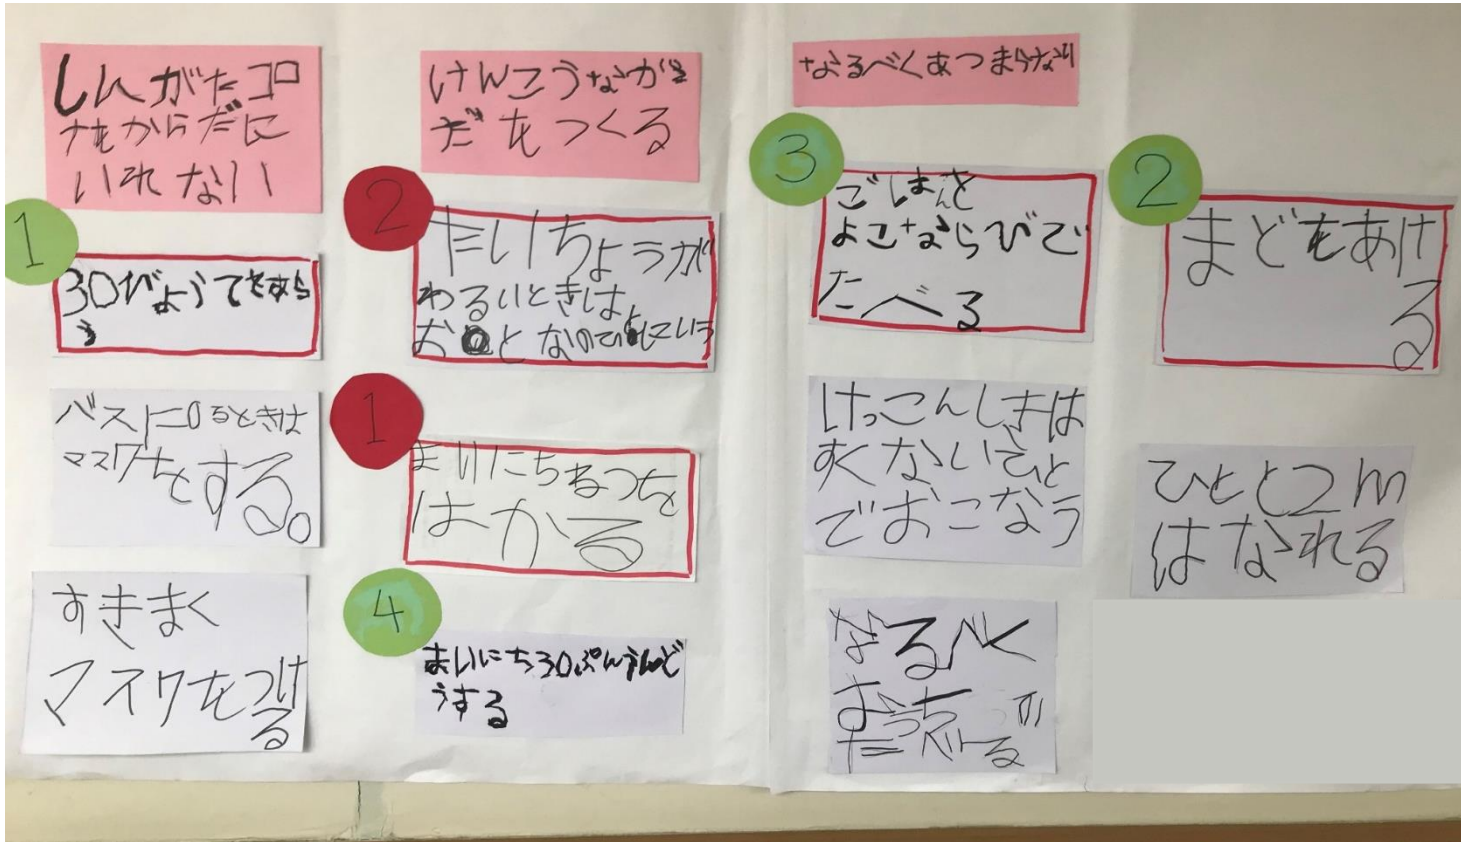 しんがたコロ
ナをからだに
いれない
1
30びょうてをあら
う
バスにのるときは
マスクをする。
すきまく
マスクをつけ
る
けんこうなから
だをつくる
2
たいちょうが
わるいときは
おとなのひとにいう
1
まいにちねつを
はかる
4
まいにち30ぷんうんど
うする
なるべくあつまらない
3
ごはんを
よこならびで
たべる
けっこんしきは
すくないひと
でおこなう
なるべく
おうち
たべる
2
まどをあけ
る
ひとと2m
はなれる